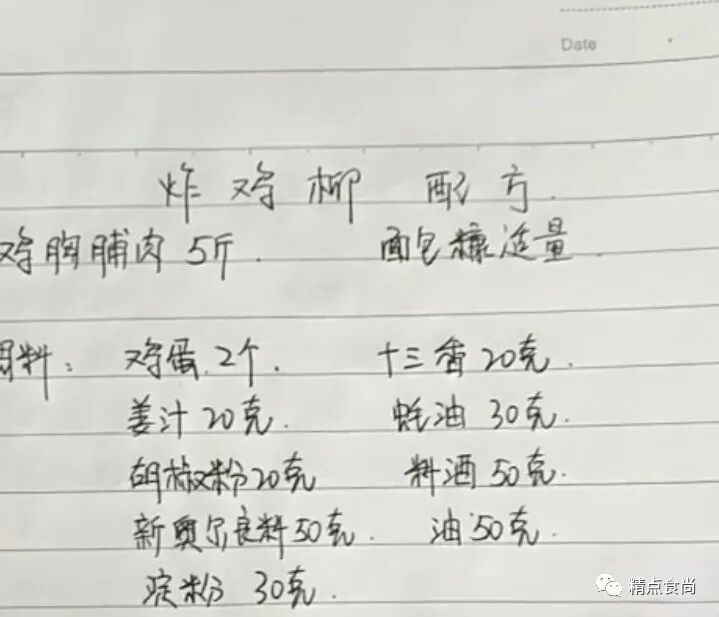 Date
炸鸡柳 配方.
鸡胸脯肉 5斤. 面包糠适量.
用料: 鸡蛋.2个. 十三香20克.
姜汁20克. 蚝油 30克.
胡椒粉20克 料酒50克.
新奥尔良料50克. 油50克.
淀粉 30克.
精点食尚